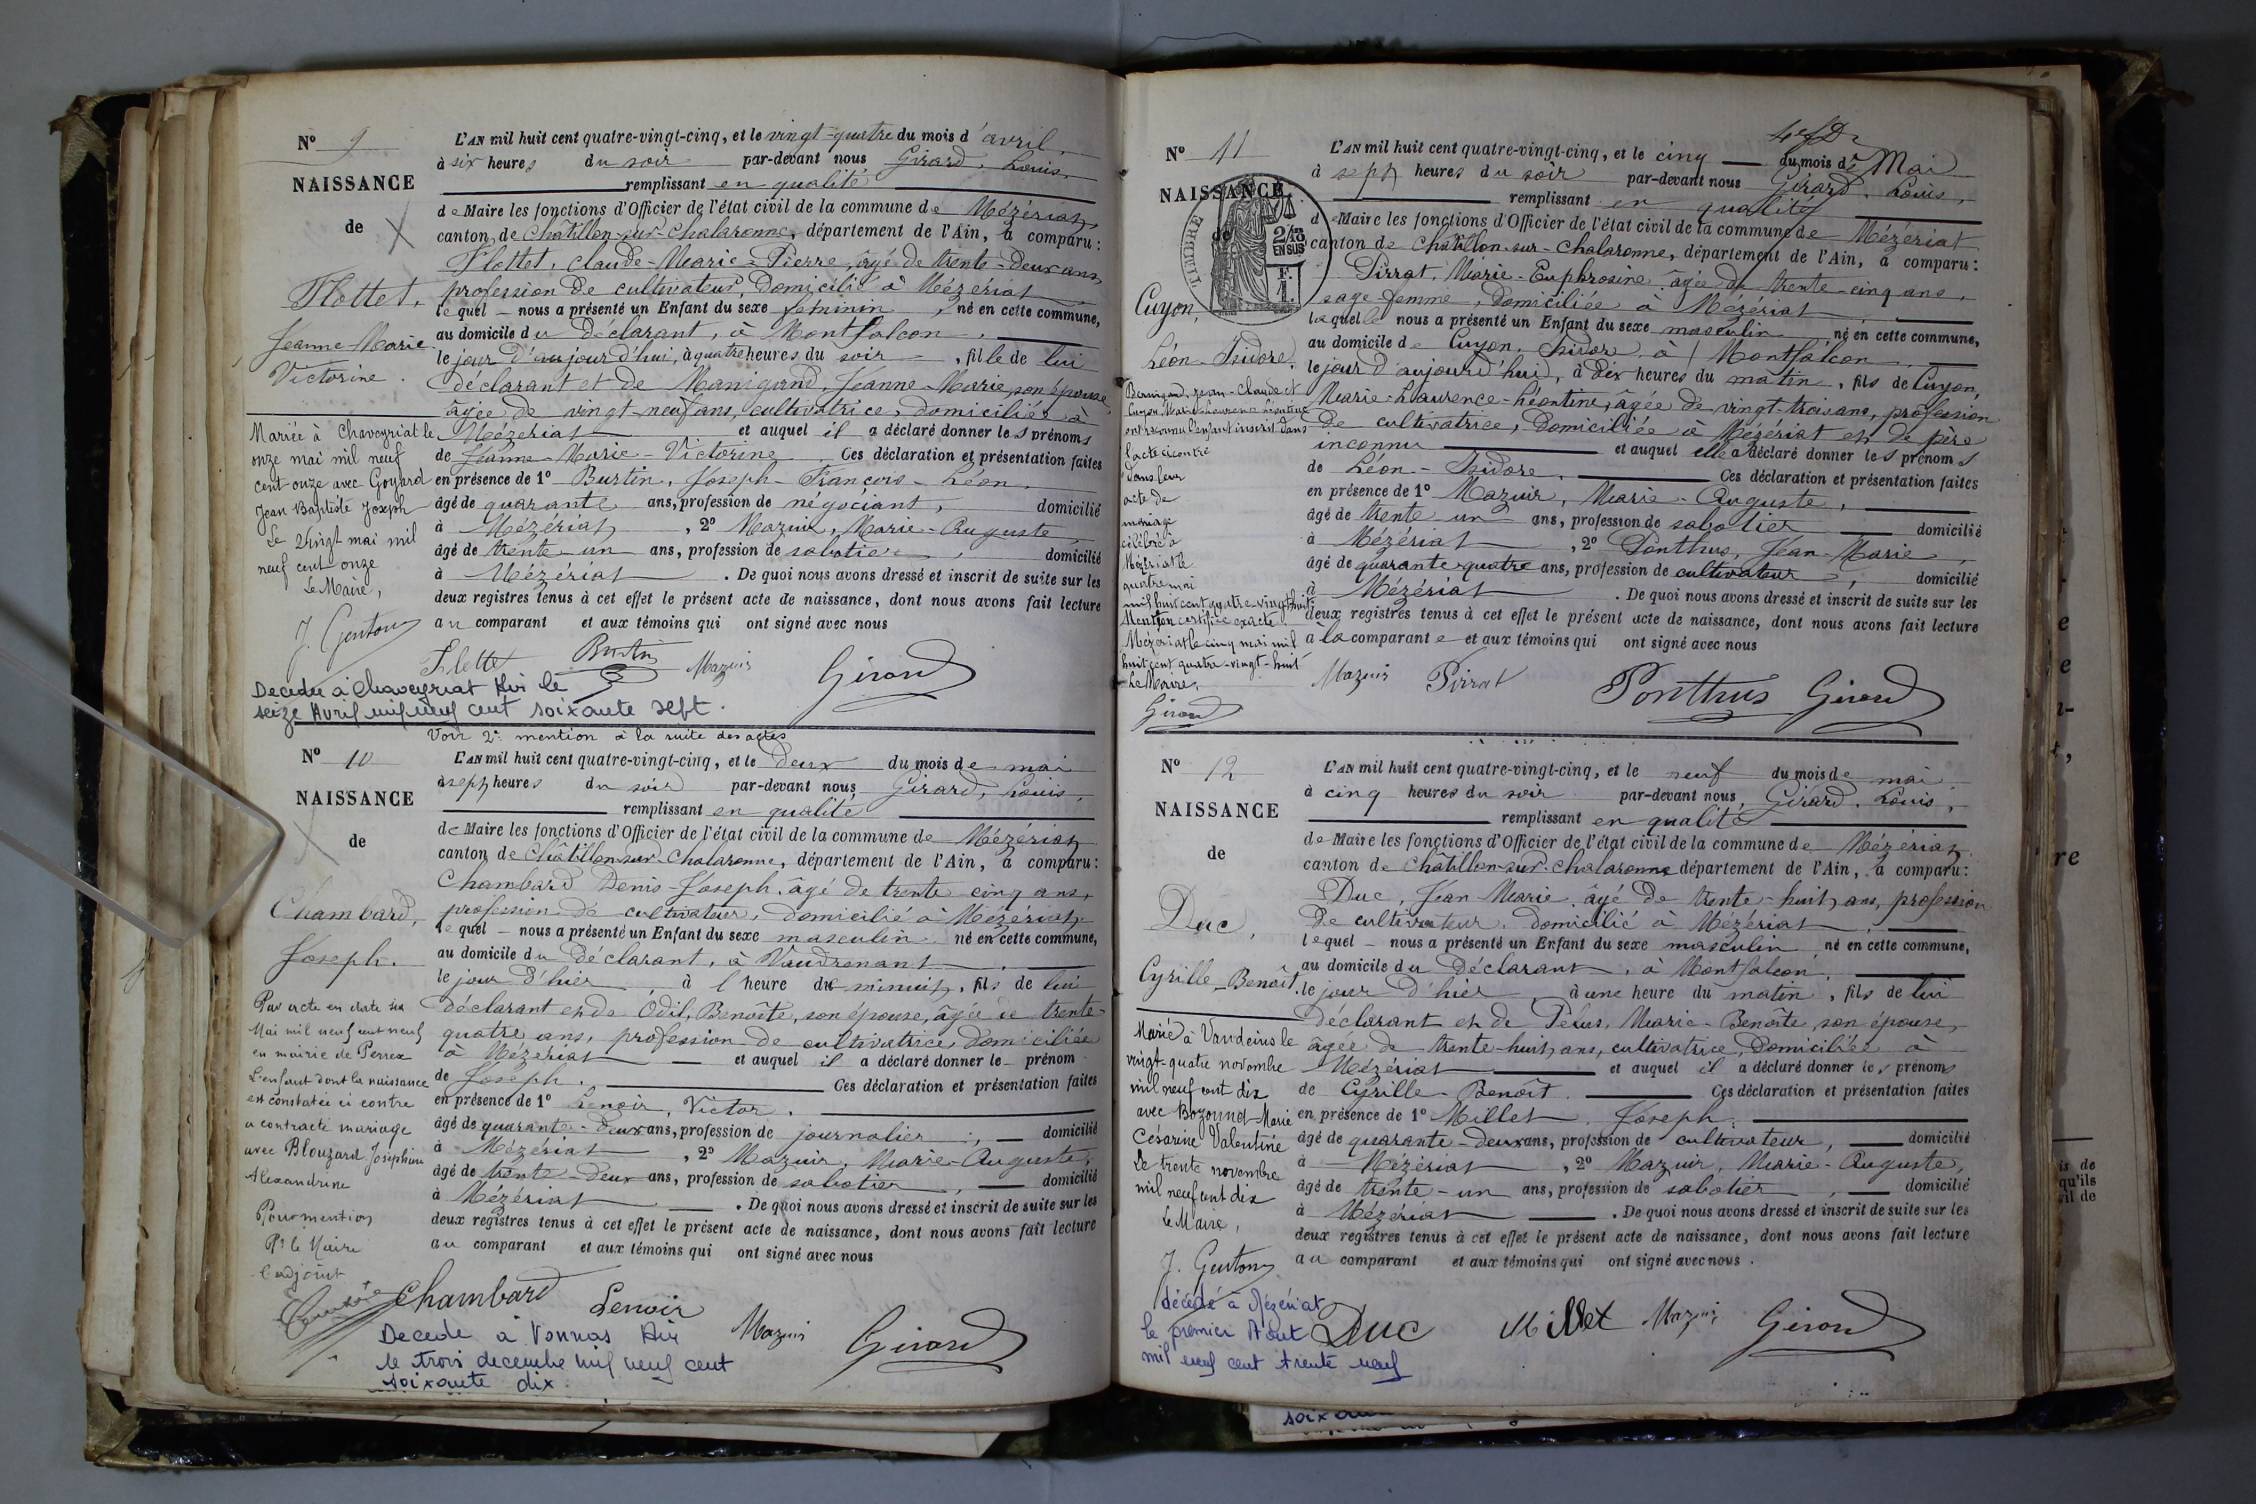 N° 9
NAISSANCE
de
Flottet,
Jeanne Marie
Victorine.
Mariée à Chaveyriat le
onze mai mil neuf
cent onze avec Goyard
Jean Baptiste Joseph
Le vingt mai mil
neuf cent onze
Le Maire,
J. Genton
L'AN mil huit cent quatre-vingt-cinq, et le vingt-quatre du mois d'avril,
à six heures du soir par-devant nous Girard, Louis,
remplissant en qualité
de Maire les fonctions d'Officier de l'état civil de la commune de Mézériat
canton de Châtillon-sur-Chalaronne, département de l'Ain, a comparu :
Flottet, Claude-Marie-Pierre, âgé de trente-deux ans,
profession de cultivateur, domicilié à Mézériat
lequel nous a présenté un Enfant du sexe féminin, né en cette commune,
au domicile du déclarant, à Montfalcon,
le jour d'aujourd'hui, à quatre heures du soir, fille de lui
déclarant et de Manigand, Jeanne-Marie, son épouse,
âgée de vingt-neuf ans, cultivatrice, domiciliée à
Mézériat et auquel il a déclaré donner les prénoms
de Jeanne-Marie-Victorine. Ces déclaration et présentation faites
en présence de 1° Burtin, Joseph-François-Léon,
âgé de quarante ans, profession de négociant, domicilié
à Mézériat, 2° Mazuir, Marie-Auguste,
âgé de trente-un ans, profession de sabotier, domicilié
à Mézériat. De quoi nous avons dressé et inscrit de suite sur les
deux registres tenus à cet effet le présent acte de naissance, dont nous avons fait lecture
au comparant et aux témoins qui ont signé avec nous
Flottet Burtin Mazuir Girard
Décédée à Chaveyriat Ain le
seize Avril mil neuf cent soixante sept.
Voir 2e mention à la suite des actes
N° 10
NAISSANCE
de
Chambard,
Joseph.
Par acte en date du
Mai mil neuf cent neuf
en mairie de Perrex
L'enfant dont la naissance
est constatée ci contre
a contracté mariage
avec Blouzard Joséphine
Alexandrine
Pour mention
Pr le Maire
L'adjoint
L'AN mil huit cent quatre-vingt-cinq, et le deux du mois de mai
à sept heures du soir par-devant nous Girard, Louis,
remplissant en qualité
de Maire les fonctions d'Officier de l'état civil de la commune de Mézériat
canton de Châtillon-sur-Chalaronne, département de l'Ain, a comparu :
Chambard Denis-Joseph, âgé de trente cinq ans,
profession de cultivateur, domicilié à Mézériat,
lequel nous a présenté un Enfant du sexe masculin né en cette commune,
au domicile du déclarant, à Vaudrenant,
le jour d'hier, à l'heure de minuit, fils de lui
déclarant et de Odil, Benoîte, son épouse, âgée de trente-
quatre ans, profession de cultivatrice, domiciliée
à Mézériat et auquel il a déclaré donner le prénom
de Joseph. Ces déclaration et présentation faites
en présence de 1° Lenoir, Victor,
âgé de quarante-deux ans, profession de journalier, domicilié
à Mézériat, 2° Mazuir, Marie-Auguste,
âgé de trente-deux ans, profession de sabotier, domicilié
à Mézériat. De quoi nous avons dressé et inscrit de suite sur les
deux registres tenus à cet effet le présent acte de naissance, dont nous avons fait lecture
au comparant et aux témoins qui ont signé avec nous
Chambard Lenoir Mazuir Girard
Décédé à Vonnas Ain
le trois decembre mil neuf cent
soixante dix.
N° 11
NAISSANCE
de
TIMBRE
2/10
EN SUS
F.
1.
Guyon,
Léon-Isidore.
Bernigaud, Jean-Claude et
Guyon, Marie-Laurence-Léontine
ont reconnu l'enfant inscrit dans
l'acte ci contre
dans leur
acte de
mariage
célébré à
Mézériat le
quatre mai
mil huit cent quatre-vingt-huit
Mention certifiée exacte
Mézériat le cinq mai mil
huit cent quatre-vingt-huit
Le Maire,
Girard
L'AN mil huit cent quatre-vingt-cinq, et le cinq du mois de Mai
à sept heures du soir par-devant nous Girard, Louis,
remplissant en qualité
de Maire les fonctions d'Officier de l'état civil de la commune de Mézériat
canton de Châtillon-sur-Chalaronne, département de l'Ain, a comparu :
Pirrat, Marie-Euphrosine, âgée de trente-cinq ans,
sage-femme, domiciliée à Mézériat,
laquelle nous a présenté un Enfant du sexe masculin né en cette commune,
au domicile de Guyon, Isidore, à Montfalcon,
le jour d'aujourd'hui, à dix heures du matin, fils de Guyon,
Marie-Laurence-Léontine, âgée de vingt-trois ans, profession
de cultivatrice, domiciliée à Mézériat et de père
inconnu et auquel elle a déclaré donner les prénoms
de Léon-Isidore. Ces déclaration et présentation faites
en présence de 1° Mazuir, Marie-Auguste,
âgé de trente un ans, profession de sabotier domicilié
à Mézériat, 2° Ponthus, Jean-Marie,
âgé de quarante-quatre ans, profession de cultivateur, domicilié
à Mézériat. De quoi nous avons dressé et inscrit de suite sur les
deux registres tenus à cet effet le présent acte de naissance, dont nous avons fait lecture
à la comparante et aux témoins qui ont signé avec nous
Mazuir Pirrat Ponthus Girard
N° 12
NAISSANCE
de
Duc,
Cyrille-Benoît.
Marié à Vandeins le
vingt-quatre novembre
mil neuf cent dix
avec Bozonnet Marie
Césarine Valentine
Le trente novembre
mil neuf cent dix
Le Maire,
J. Genton
décédé à Mézériat
le premier Août
mil neuf cent trente neuf
L'AN mil huit cent quatre-vingt-cinq, et le neuf du mois de mai
à cinq heures du soir par-devant nous, Girard, Louis,
remplissant en qualité
de Maire les fonctions d'Officier de l'état civil de la commune de Mézériat
canton de Châtillon-sur-Chalaronne département de l'Ain, a comparu :
Duc, Jean Marie, âgé de trente-huit ans, profession
de cultivateur, domicilié à Mézériat,
lequel nous a présenté un Enfant du sexe masculin né en cette commune,
au domicile du déclarant, à Montfalcon,
le jour d'hier, à une heure du matin, fils de lui
déclarant et de Pelus, Marie-Benoîte, son épouse,
âgée de trente-huit ans, cultivatrice, domiciliée à
Mézériat et auquel il a déclaré donner les prénoms
de Cyrille-Benoît. Ces déclaration et présentation faites
en présence de 1° Millet, Joseph,
âgé de quarante-deux ans, profession de cultivateur, domicilié
à Mézériat, 2° Mazuir, Marie-Auguste,
âgé de trente-un ans, profession de sabotier, domicilié
à Mézériat. De quoi nous avons dressé et inscrit de suite sur les
deux registres tenus à cet effet le présent acte de naissance, dont nous avons fait lecture
au comparant et aux témoins qui ont signé avec nous.
Duc Millet Mazuir Girard